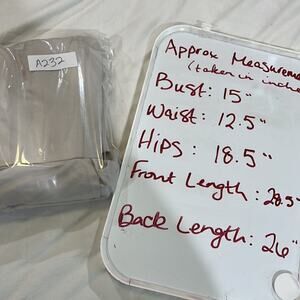 A232
Approx Measurem
(taken in inche
Bust: 15"
Waist: 12.5"
Hips: 18.5"
Front Length: 28.5"
Back Length: 26"